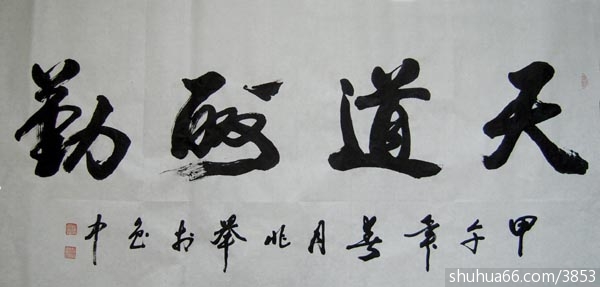 天道酬勤
甲午年春月兆举於中
shuhua66.com/3853